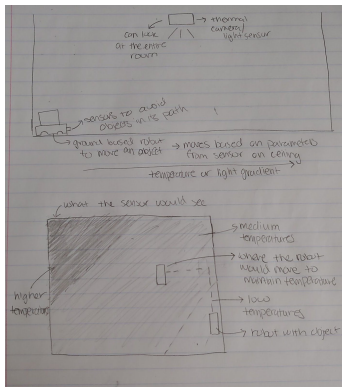 can look
at the entire
room
→ thermal
camera/
light sensor
→ sensors to avoid
objects in its path
→ ground based robot
to move an object
→ moves based on parameters
from sensor on ceiling
temperature or light gradient
what the sensor would see
→ medium
temperatures
→ where the robot
would move to
maintain temperature
higher
temperatures
→ low
temperatures
→ robot with object